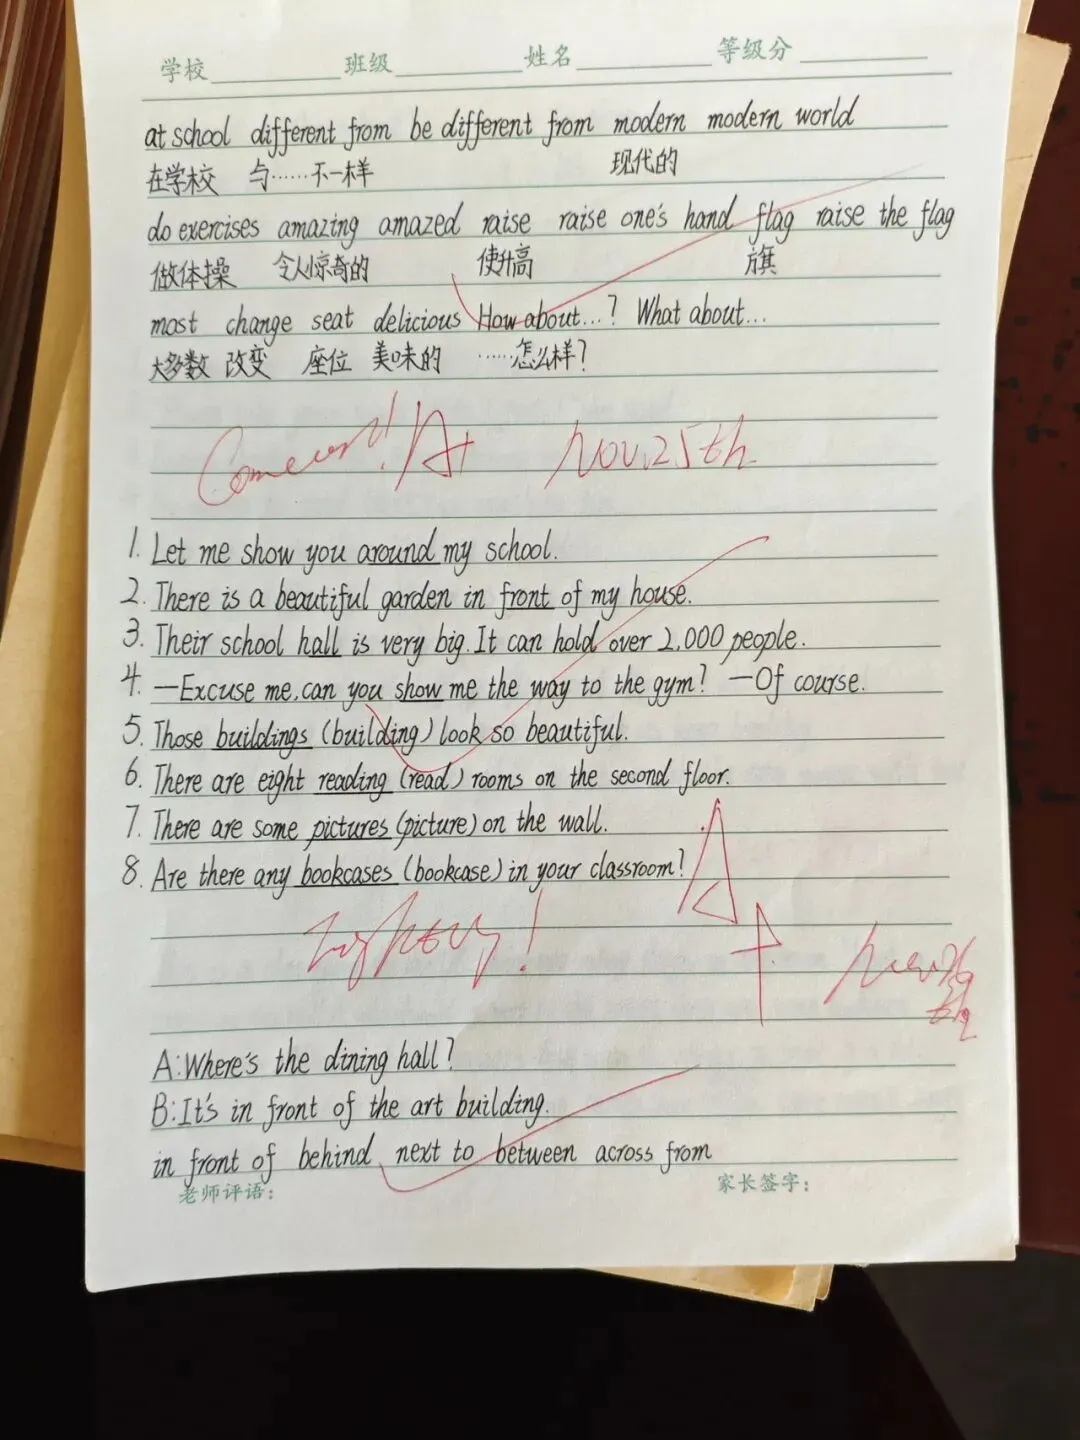 学校 班级 姓名 等级分
at school different from be different from modern modern world
在学校 与……不一样 现代的
do exercises amazing amazed raise raise one's hand flag raise the flag
做体操 令人惊奇的 使升高 旗
most change seat delicious How about...? What about...
大多数 改变 座位 美味的 ……怎么样?
A+ Nov.25th
1. Let me show you around my school.
2. There is a beautiful garden in front of my house.
3. Their school hall is very big. It can hold over 2,000 people.
4. —Excuse me, can you show me the way to the gym? —Of course.
5. Those buildings (building) look so beautiful.
6. There are eight reading (read) rooms on the second floor.
7. There are some pictures (picture) on the wall.
8. Are there any bookcases (bookcase) in your classroom?
A+
A: Where's the dining hall?
B: It's in front of the art building.
in front of behind next to between across from
老师评语: 家长签字: